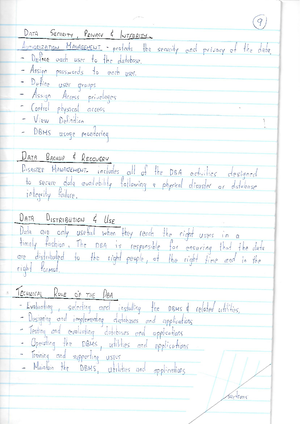 9
DATA SECURITY, PRIVACY & INTEGRITY
AUTHORIZATION MANAGEMENT - protects the security and privacy of the data
- Define each user to the database.
- Assign passwords to each user.
- Define user groups
- Assign Access privileges
- Control physical access
- View Definition
- DBMS usage monitoring
DATA BACKUP & RECOVERY
DISASTER MANAGEMENT - includes all of the DBA activities designed
to secure data availability following a physical disaster or database
integrity failure.
DATA DISTRIBUTION & USE
Data are only useful when they reach the right users in a
timely fashion. The DBA is responsible for ensuring that the data
are distributed to the right people, at the right time and in the
right format.
TECHNICAL ROLE OF THE DBA
- Evaluating, selecting and installing the DBMS & related utilities.
- Designing and implementing databases and applications
- Testing and evaluating databases and applications
- Operating the DBMS, utilities and applications
- Training and supporting users
- Maintain the DBMS, utilities and applications